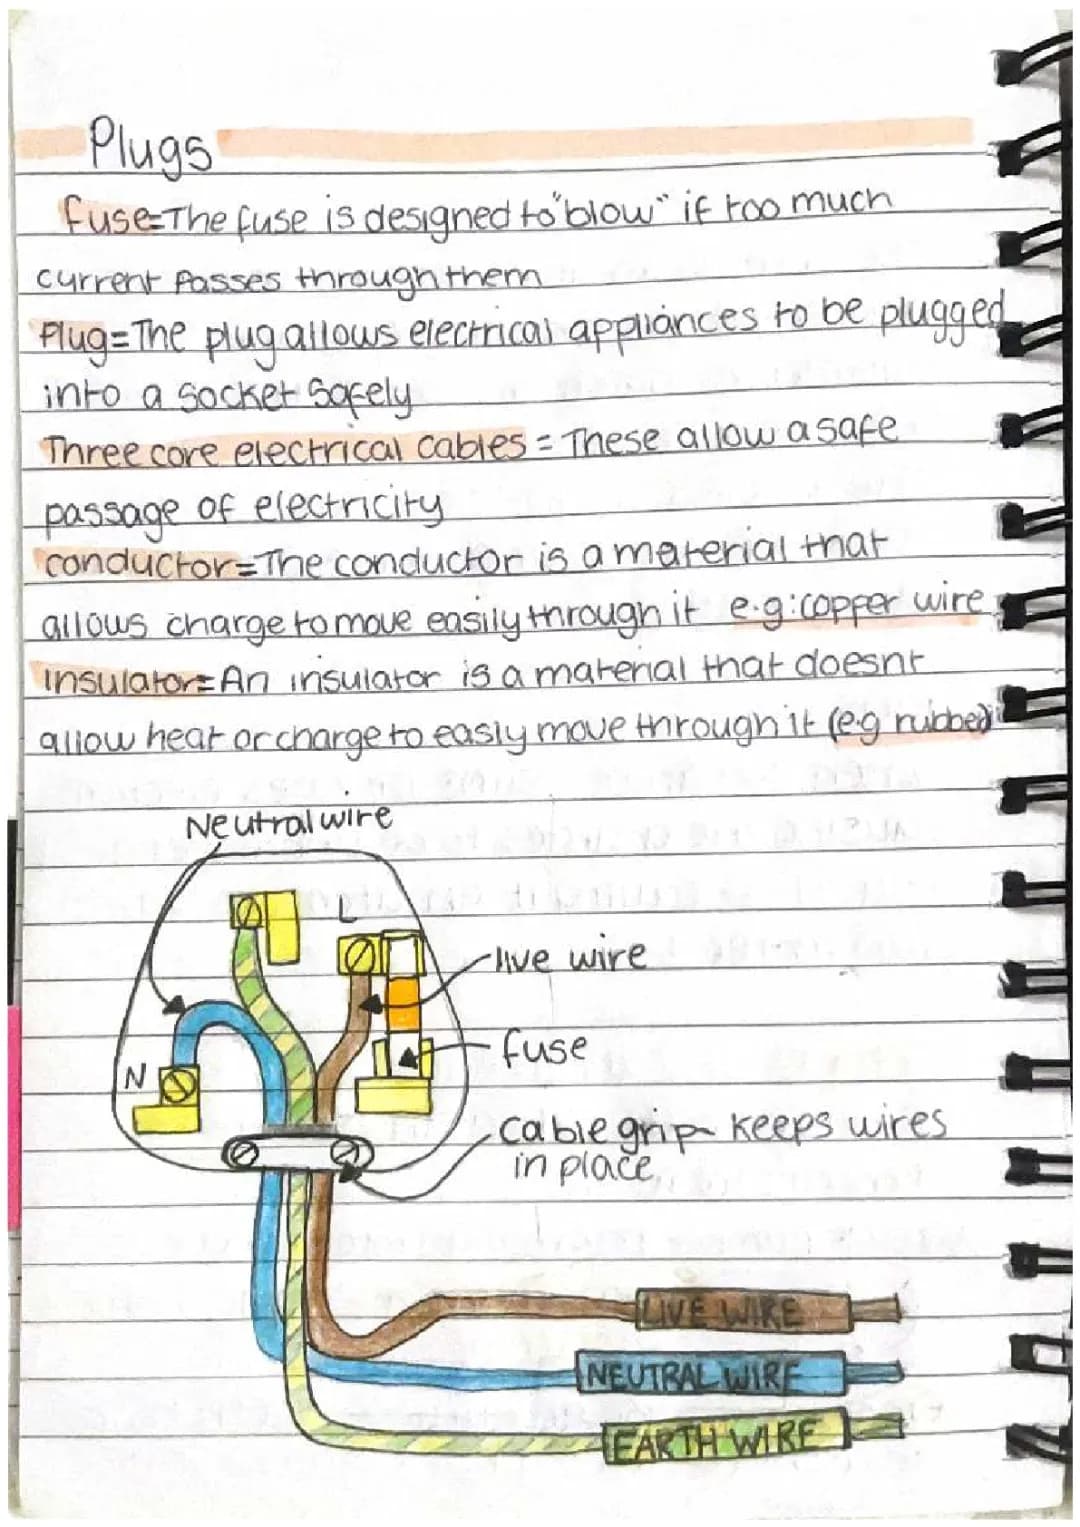 Plugs
fuse=The fuse is designed to "blow" if too much
current passes through them
Plug=The plug allows electrical appliances to be plugged
into a socket safely
Three core electrical cables = These allow a safe
passage of electricity
conductor=The conductor is a material that
allows charge to move easily through it e.g:copper wire
insulator=An insulator is a material that doesnt
allow heat or charge to easly move through it (e.g rubber)
Neutral wire
L
live wire
N
fuse
cable grip - keeps wires
in place
LIVE WIRE
NEUTRAL WIRE
EARTH WIRE